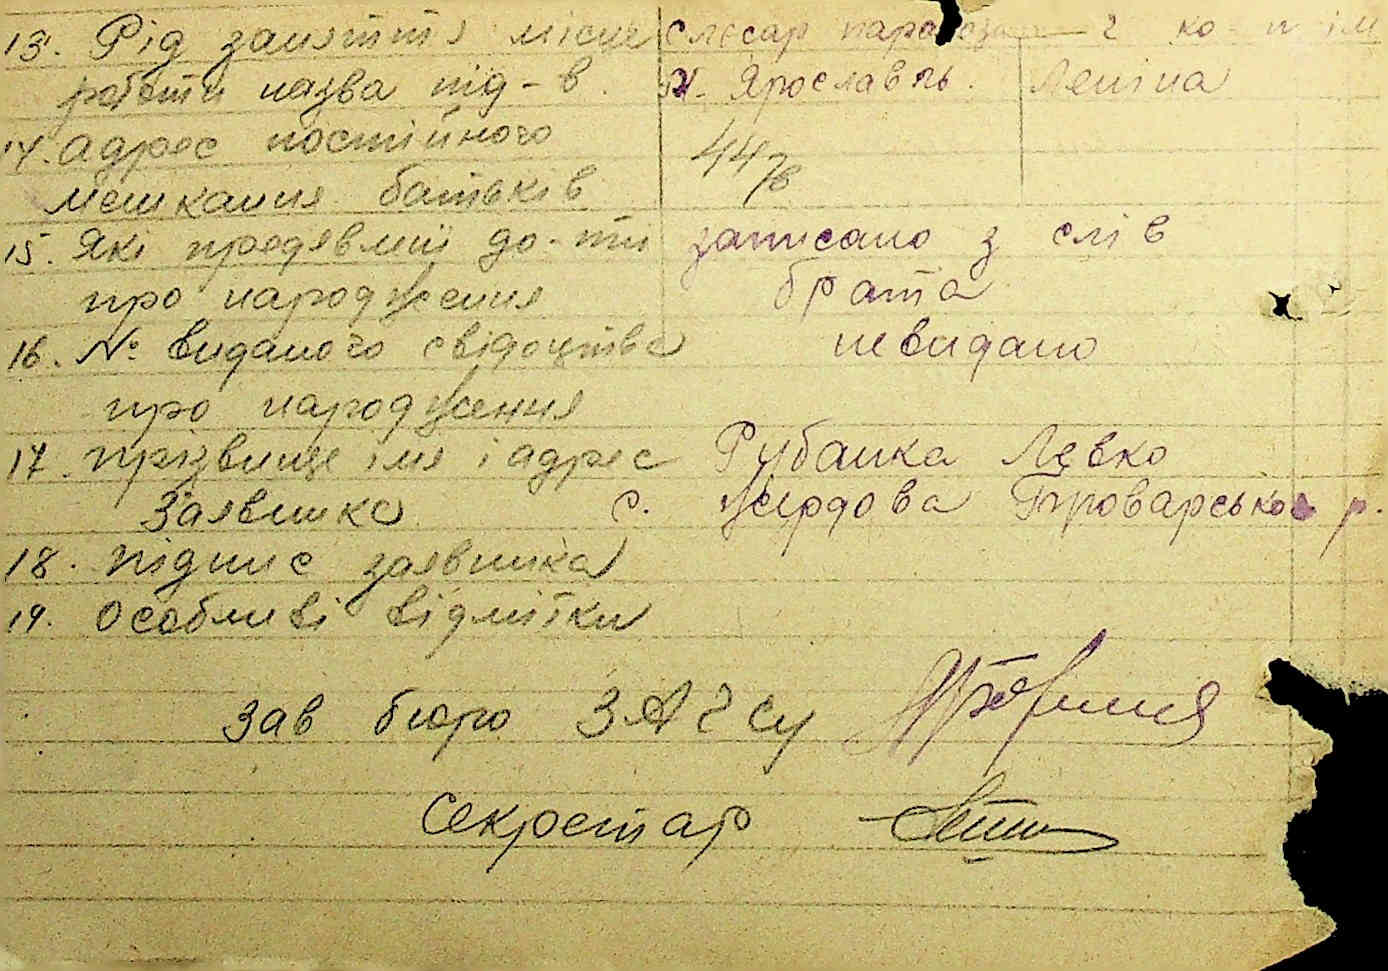 13. Рід заняття місце слесар паровоза г ко-п ім
роботи назва під-в. м. Ярославль. Леніна
14. адрес постійного 44/78
мешкання батьків
15. які предявлені до-ти записано з слів
про народження брата
16. № виданого свідоцтва невидано
про народження
17. прізвище імя і адрес Рубанка Левко
Заявника с. Жердова Броварськоі р.
18. підпис заявника
19. особливі відмітки
зав бюро ЗАГСу
Секретар